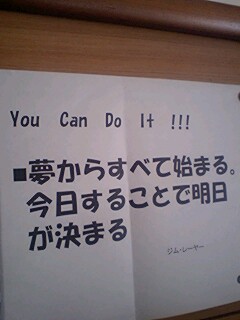 You Can Do It !!!
■夢からすべて始まる。
今日することで明日
が決まる
ジム・レーヤー